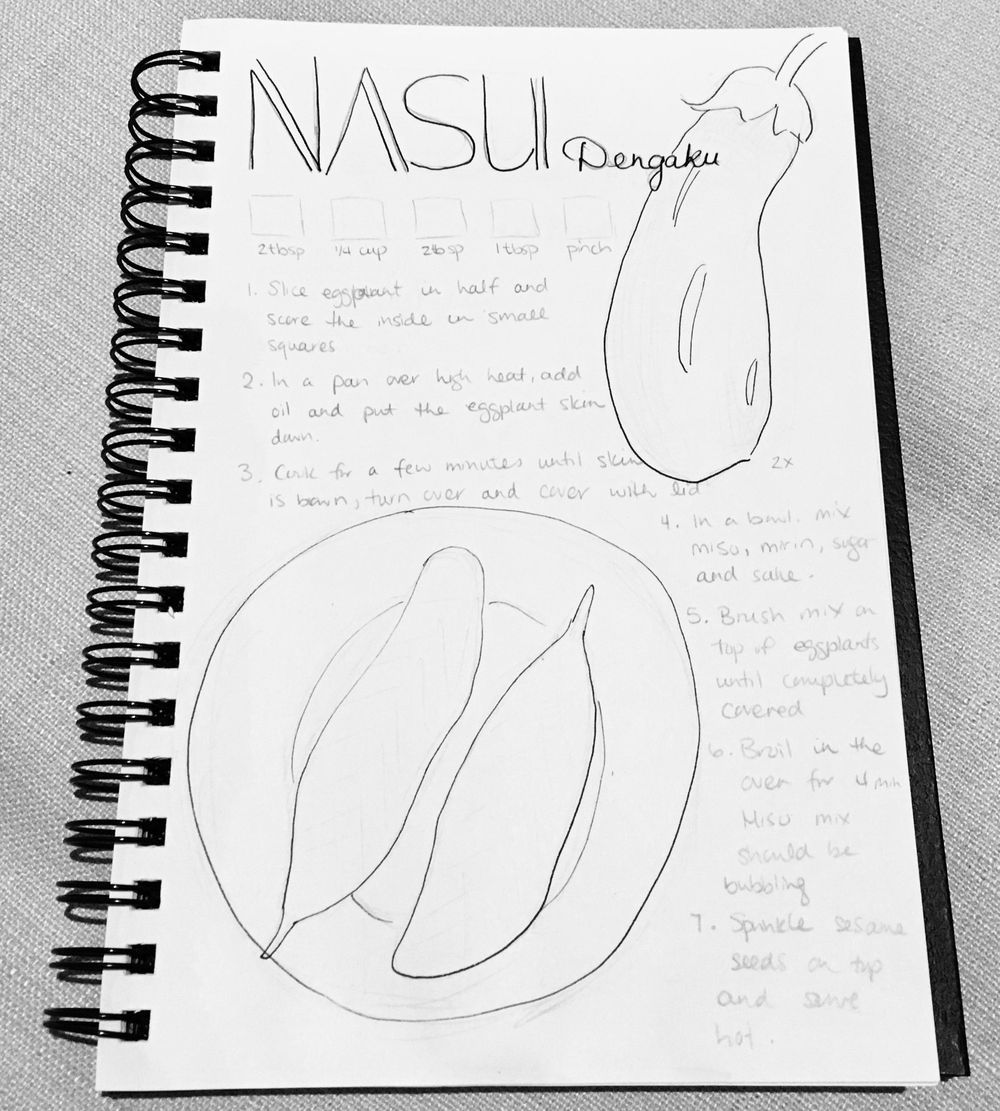 NASUI Dengaku
2tbsp 1/4 cup 2tbsp 1tbsp pinch
1. Slice eggplant in half and
score the inside in small
squares
2. In a pan over high heat, add
oil and put the eggplant skin
down.
3. Cook for a few minutes until skin
is bown, turn over and cover with lid
2x
4. In a bowl. mix
miso, mirin, sugar
and sake.
5. Brush mix on
top of eggplants
until completely
covered
6. Broil in the
oven for 4 min
Miso mix
should be
bubbling
7. Sprinkle sesame
seeds on top
and serve
hot.